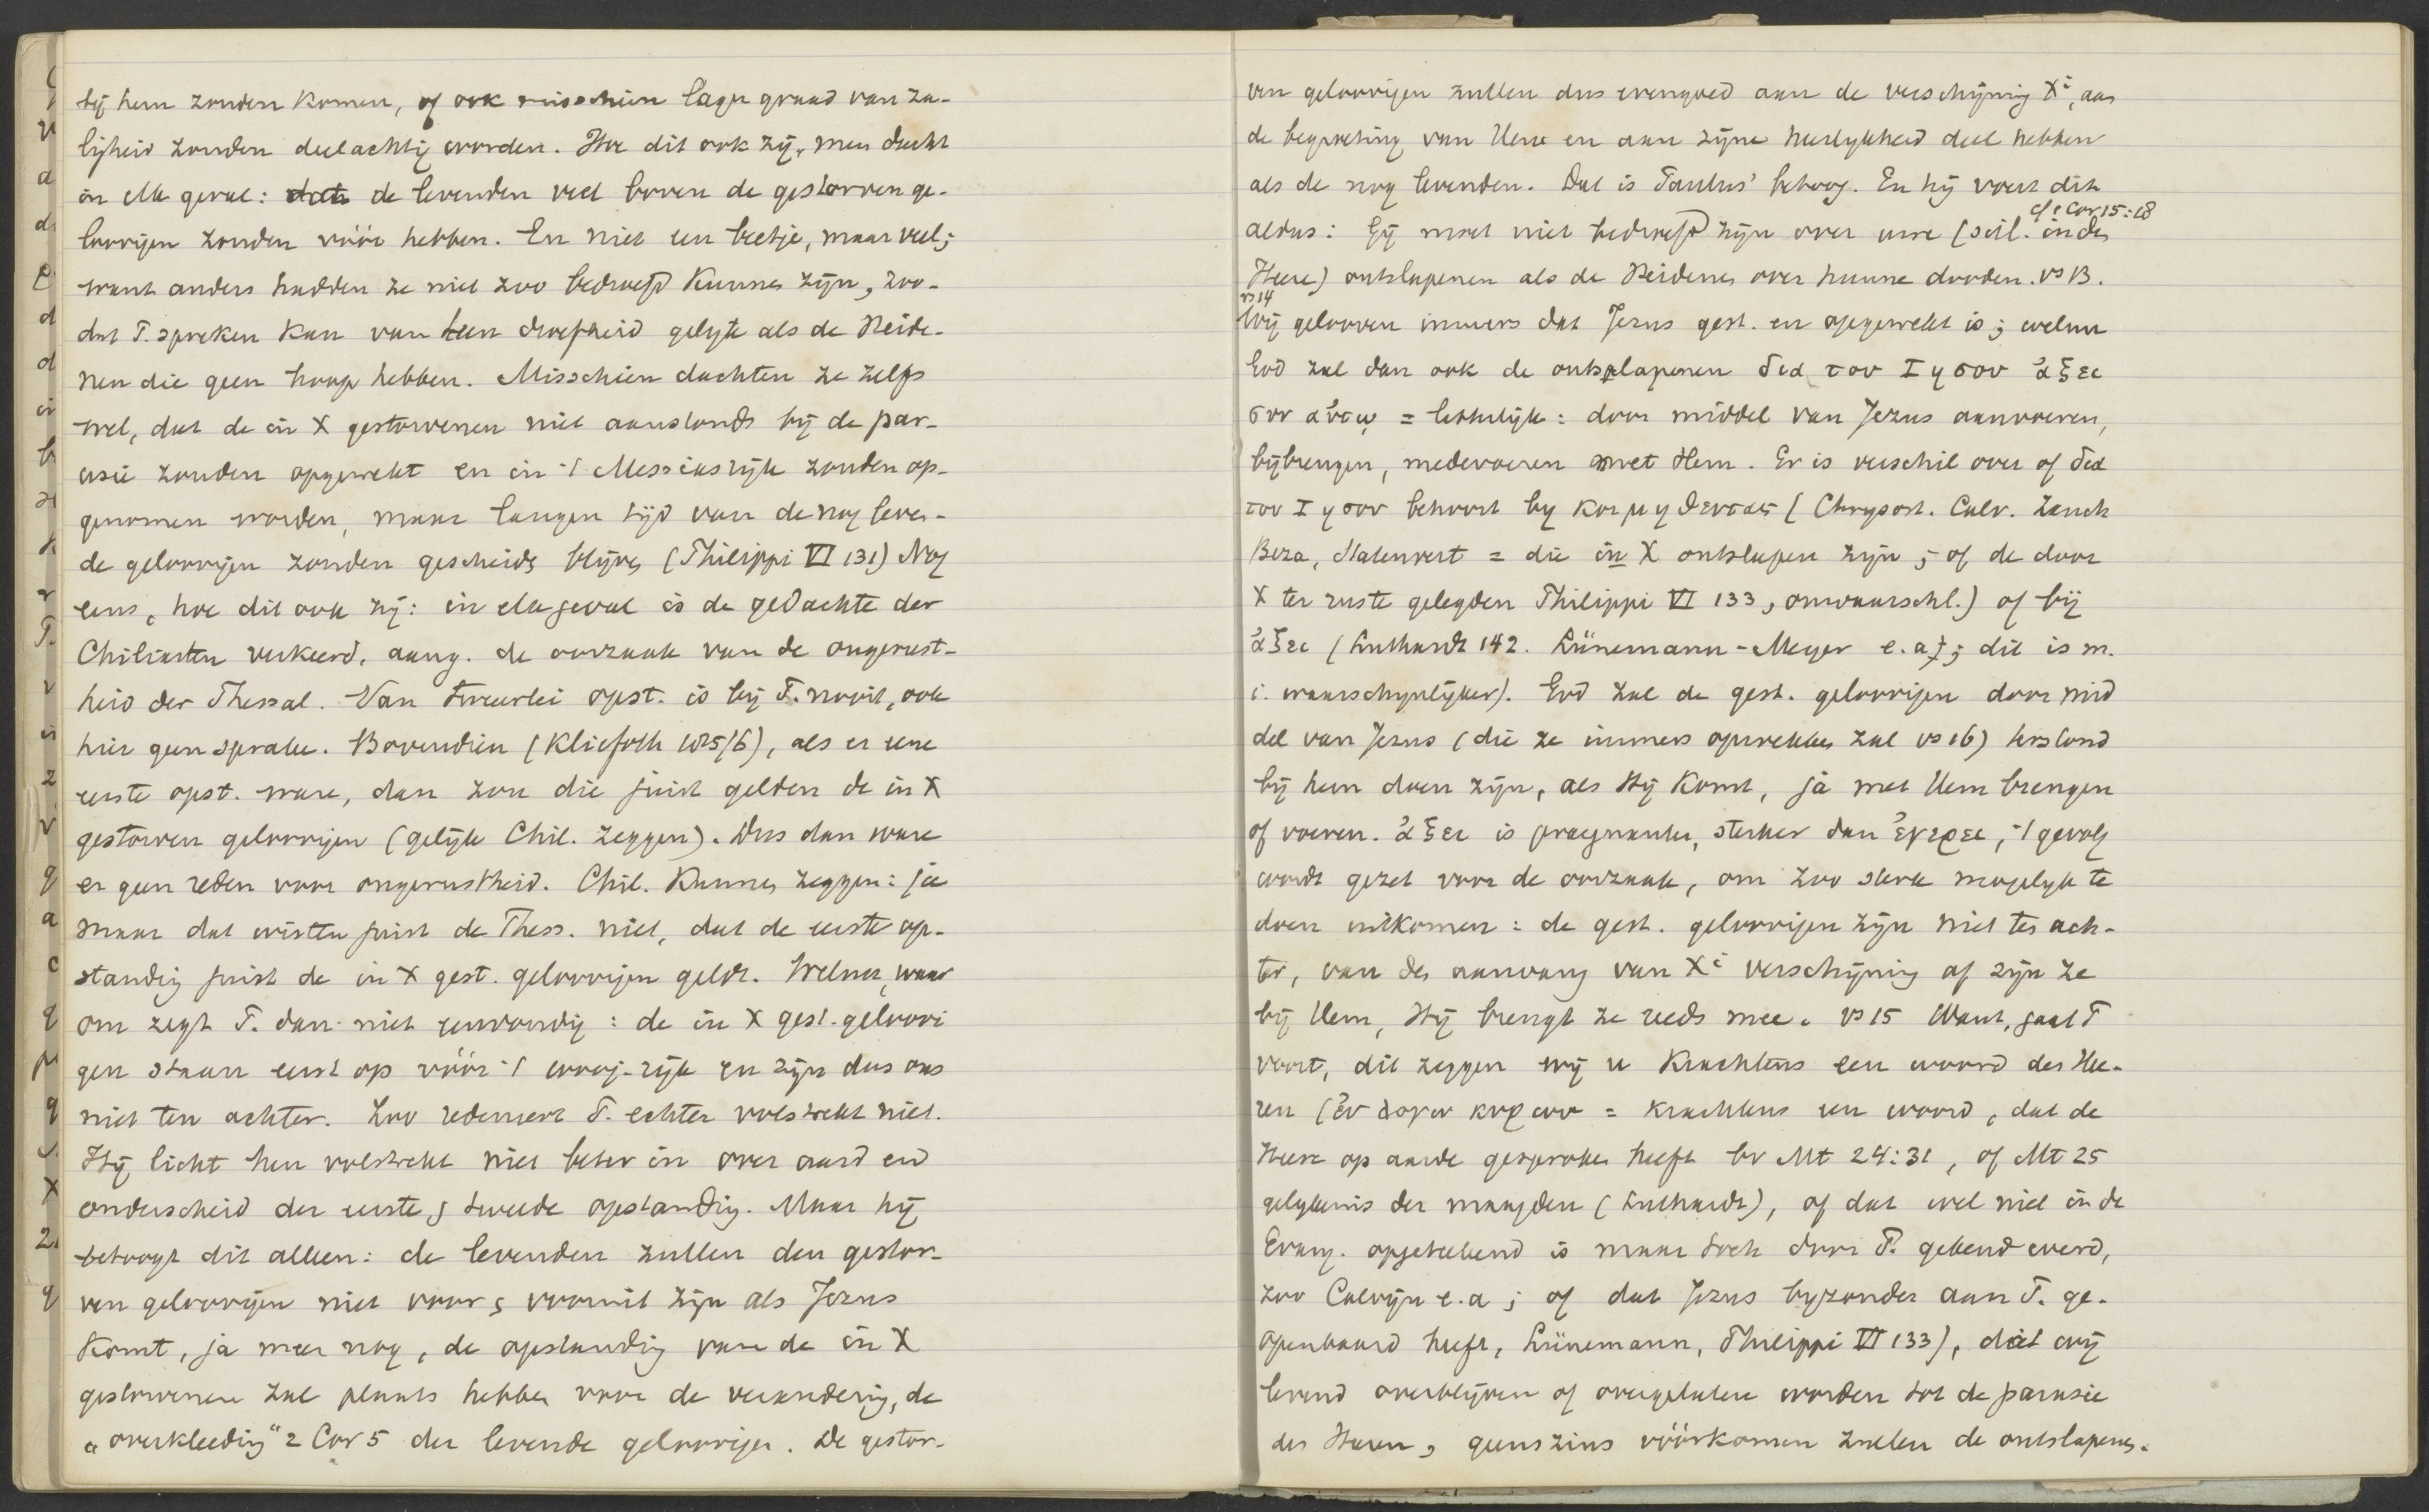 bij hem zouden komen, of ook misschien lager graad van za-
ligheid zouden deelachtig worden. Hoe dit ook zij, men dacht
in elk geval: de levenden veel boven de gestorven ge-
loovigen zouden vóór hebben. En niet een beetje, maar veel;
want anders hadden ze niet zoo bedroefd kunnen zijn, zoo-
dat P. spreken kan van een droefheid gelijk als de Heide-
nen die geen hoop hebben. Misschien dachten ze zelfs
wel, dat de in X gestorvenen niet aanstonds bij de par-
usie zouden opgewekt en in 't Messiasrijk zouden op-
genomen worden, maar langen tijd van de nog leven-
de geloovigen zouden gescheiden blijven (Philippi VI 131) Nog
eens, hoe dit ook zij: in elk geval is de gedachte der
Chiliasten verkeerd, aang. de oorzaak van de ongerust-
heid der Thessal. Van tweeërlei opst. is bij P. nooit, ook
hier geen sprake. Bovendien (Kliefoth 1025/6), als er eene
eerste opst. ware, dan zou die juist gelden de in X
gestorven geloovigen (gelijk Chil. zeggen). Dus dan ware
er geen reden voor ongerustheid. Chil. kunnen zeggen: ja
maar dat wisten juist de Thess. niet, dat de eerste op-
standing juist de in X gest. geloovigen geldt. Welnu, waar
om zegt P. dan niet eenvoudig: de in X gest. geloovi
gen staan eerst op vóór 't 1000j-rijk en zijn dus ons
niet ten achter. Zoo redeneert P. echter volstrekt niet.
Hij licht hen volstrekt niet beter in over aard en
onderscheid der eerste & tweede opstanding. Maar hij
betoogt dit alleen: de levenden zullen den gestor-
ven geloovigen niet voor & vooruit zijn als Jezus
komt, ja meer nog, de opstanding van de in X
gestorvenen zal plaats hebben voor de verandering, de
„overkleeding" 2 Cor 5 der levende geloovigen. De gestor-
ven geloovigen zullen dus evengoed aan de verschijning Xi, aan
de begroeting van Hem en aan zijne heerlijkheid deel hebben
als de nog levenden. Dat is Paulus' betoog. En hij voert dit
cf 1 Cor 15:18
aldus: Gij moet niet bedroefd zijn over uwe (scil. in den
Heere) ontslapenen als de Heidenen over hunne dooden. vs 13.
vs 14
Wij gelooven immers dat Jezus gest. en opgewekt is; welnu
God zal dan ook de ontslapenen δια του Ιησου ἀξει
συν αὐτῳ = letterlijk: door middel van Jezus aanvoeren,
bijbrengen, medevoeren met Hem. Er is verschil over of δια
του Ιησου behoort bij κοιμηθεντας (Chrysost. Calv. Zanch
Beza, Statenvert = die in X ontslapen zijn; of de door
X ter ruste gelegden Philippi VI 133, onwaarschl.) of bij
ἀξει (Luthardt 142. Lünemann-Meyer e.a.; dit is m.
i. waarschijnlijker). God zal de gest. geloovigen door mid
del van Jezus (die ze immers opwekken zal vs 16) terstond
bij hem doen zijn, als Hij komt, ja met Hem brengen
of voeren. ἀξει is praegnanter, sterker dan ἐγερει, 't gevolg
wordt gezet voor de oorzaak, om zoo sterk mogelijk te
doen uitkomen: de gest. geloovigen zijn niet ten ach-
ter, van den aanvang van Xi verschijning af zijn ze
bij Hem, Hij brengt ze reeds mee. vs 15 Want, gaat P
voort, dit zeggen wij u krachtens een woord des Hee-
ren (ἐν λογω κυριου = krachtens een woord, dat de
Heere op aarde gesproken heeft bv Mt 24:31, of Mt 25
gelijkenis der maagden (Luthardt), of dat wel niet in de
Evang. opgeteekend is maar toch door P. gekend werd,
zoo Calvijn e.a; of dat Jezus byzonder aan P. ge-
openbaard heeft, Lünemann, Philippi VI 133), dat wij
levend overblijven of overgelaten worden tot de parusie
des Heeren, geenszins vóórkomen zullen de ontslapenen.